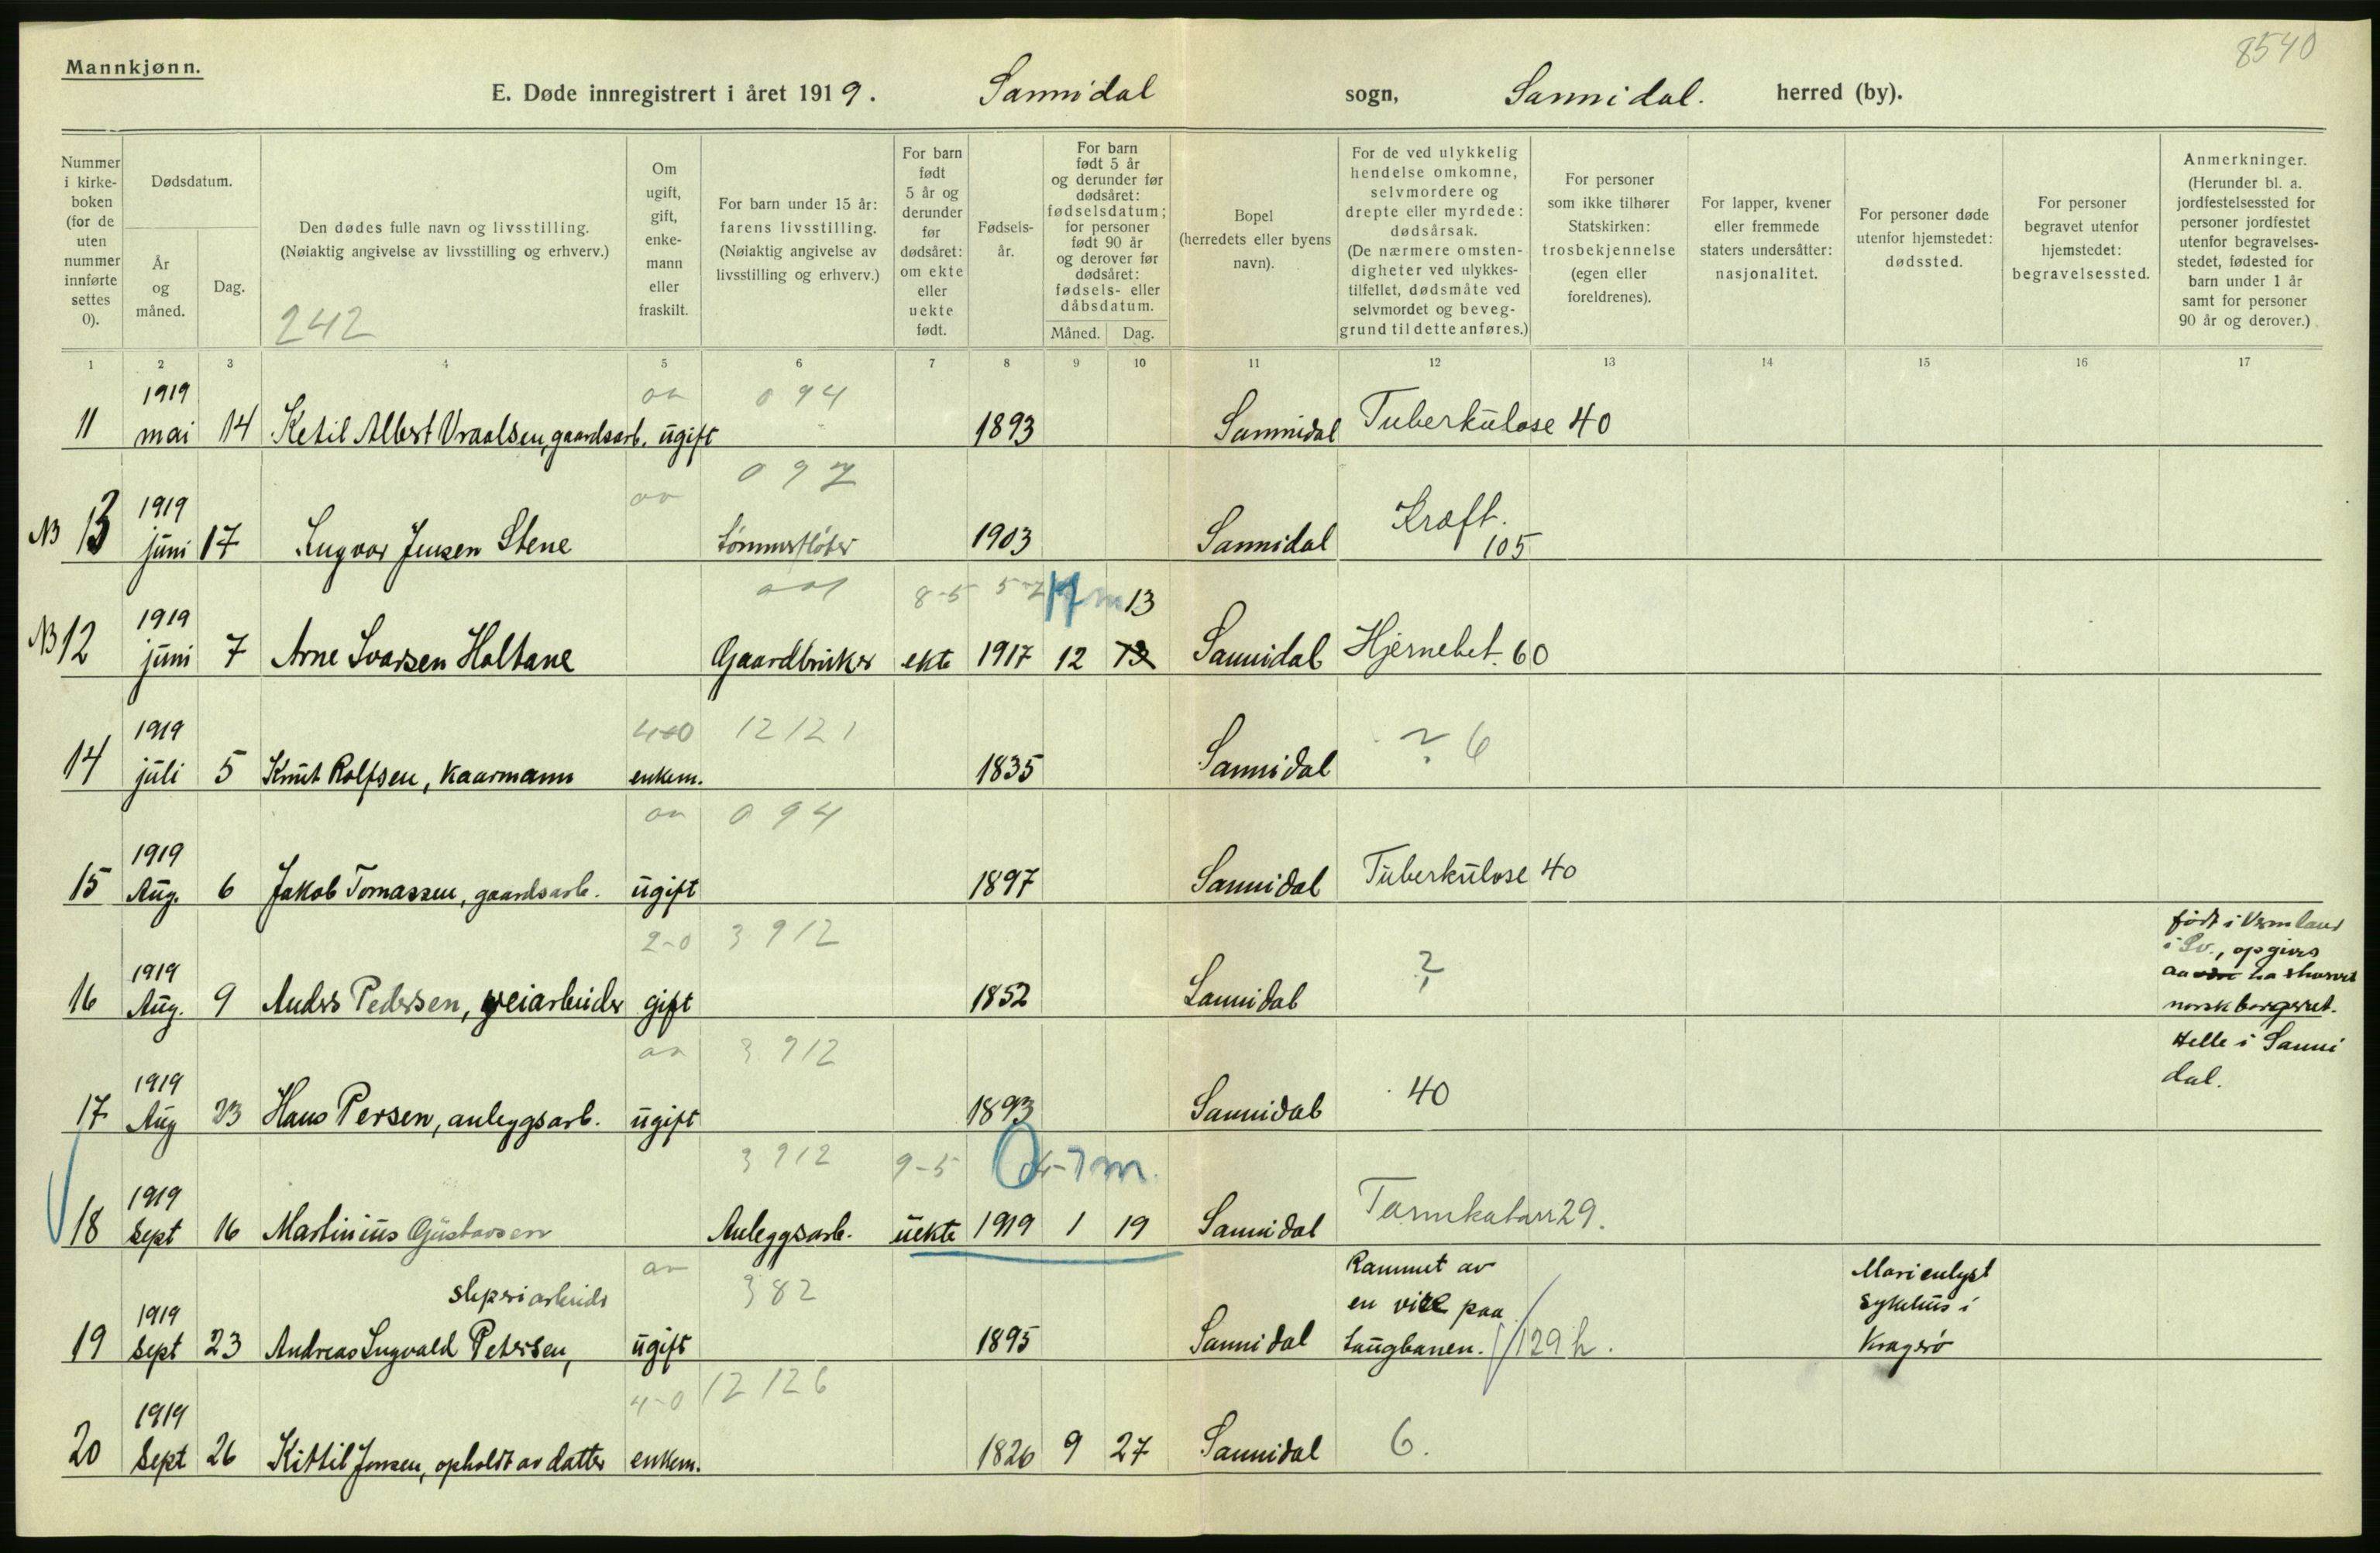 8540
Mannkjønn.
E. Døde innregistrert i året 1919. Sannidal sogn, Sannidal. herred (by).
Nummer i kirke- boken (for de uten nummer innførte settes 0).
Dødsdatum.
År og måned.
Dag.
Den dødes fulle navn og livsstilling.
(Nøiaktig angivelse av livsstilling og erhverv.)
242
Om ugift, gift, enke- mann eller fraskilt.
For barn under 15 år: farens livsstilling. (Nøiaktig angivelse av livsstilling og erhverv.)
For barn født 5 år og derunder før dødsåret: om ekte eller uekte født.
Fødsels- år.
For barn født 5 år og derunder før dødsåret: fødselsdatum; for personer født 90 år og derover før dødsåret: fødsels- eller dåbsdatum.
Måned. Dag.
Bopel (herredets eller byens navn).
For de ved ulykkelig hendelse omkomne, selvmordere og drepte eller myrdede: dødsårsak. (De nærmere omsten- digheter ved ulykkes- tilfellet, dødsmåte ved selvmordet og beveg- grund til dette anføres.)
For personer som ikke tilhører Statskirken: trosbekjennelse (egen eller foreldrenes).
For lapper, kvener eller fremmede staters undersåtter: nasjonalitet.
For personer døde utenfor hjemstedet: dødssted.
For personer begravet utenfor hjemstedet: begravelsessted.
Anmerkninger. (Herunder bl. a. jordfestelsessted for personer jordfestet utenfor begravelses- stedet, fødested for barn under 1 år samt for personer 90 år og derover.)
1 2 3 4 5 6 7 8 9 10 11 12 13 14 15 16 17
1919 094
11 mai 14 Ketil Albert Vraalsen, gaardsarb. ugift 1893 Sannidal Tuberkulose 40
097
1919
NB 13 juni 17 Ingvar Jensen Stene tømmerfløter 1903 Sannidal Kræft. 105
8-5 13
1919
NB 12 juni 7 Arne Ivarsen Holtane Gaardbruker ekte 1917 12 13 Sannidal Hjernebet. 60
1919 4-0 12121
14 juli 5 Knut Rolfsen, kaarmann enkem. 1835 Sannidal ? 6
094
1919
15 Aug. 6 Jakob Tomassen, gaardsarb. ugift 1897 Sannidal Tuberkulose 40
2-0 3912
1919
16 Aug. 9 Anders Pedersen, veiarbeider gift 1852 Sannidal ?
født i Vermland
i Sv., opgives
aa ha
norsk borgerret.
3912
1919
17 Aug 23 Hans Persen, anleggsarb. ugift 1893 Sannidal 40
Helle i Sanni
dal.
3912 9-5 0 4-7 m.
1919
18 Sept 16 Martinius Gustavsen Anleggsarb. uekte 1919 1 19 Sannidal Tarmkatarr 29.
382
sliperiarbeider
1919
19 Sept 23 Andreas Ingvald Petersen, ugift 1895 Sannidal
Rammet av
en vire paa
taugbanen. 129 h.
Marienlyst
sykehus i
Kragerø
4-0 12126
1919
20 Sept 26 Kittil Jonsen, opholdt av datter enkem. 1826 9 27 Sannidal 6.